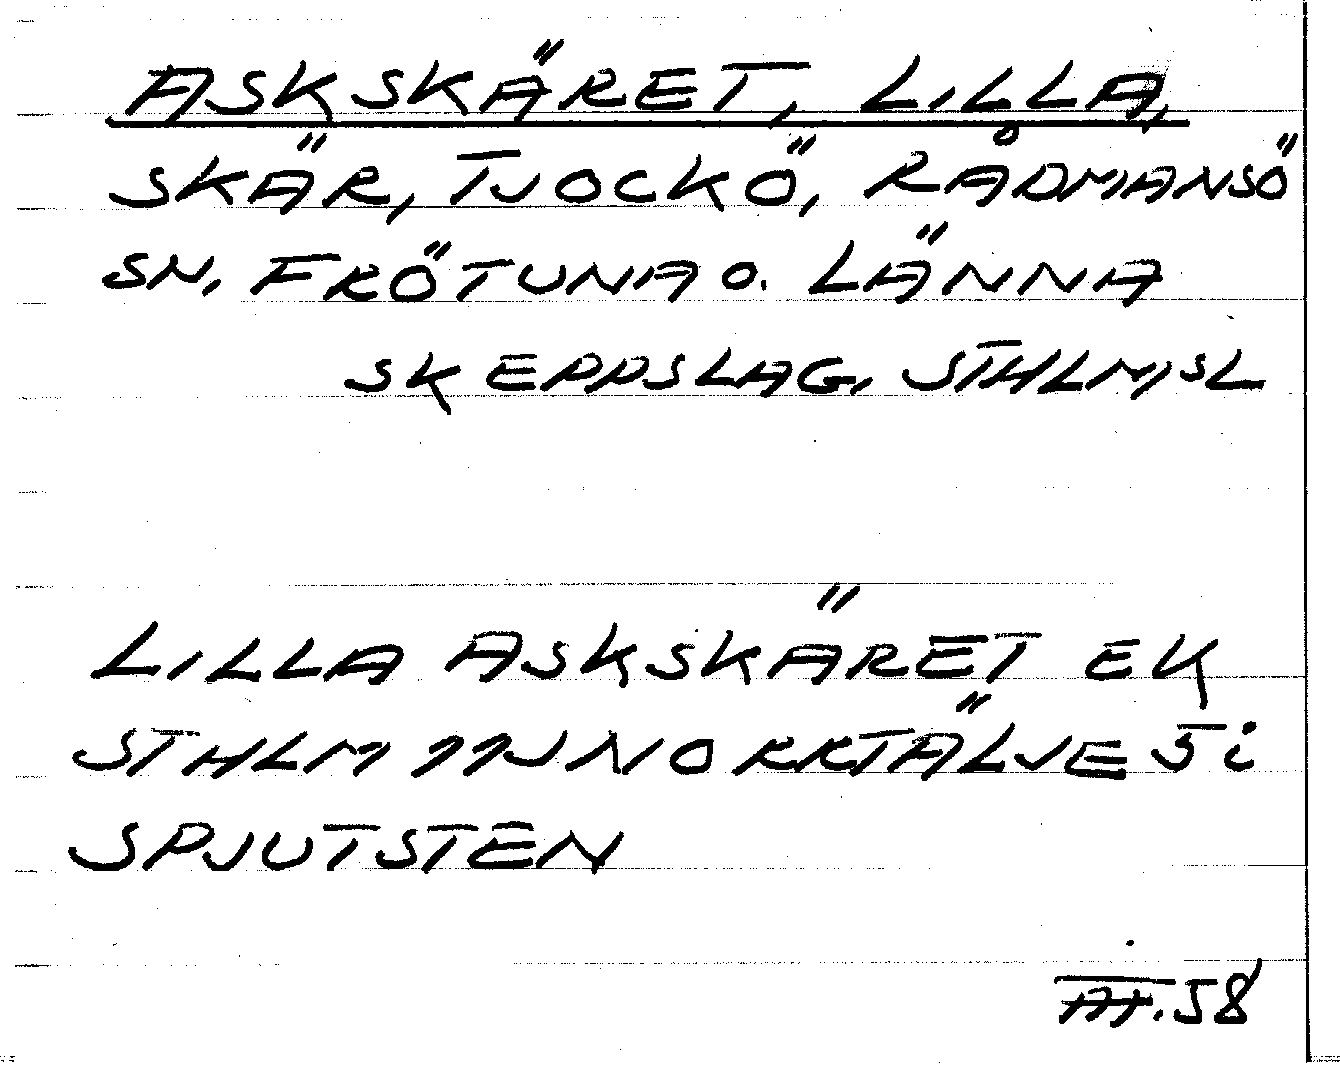 ASKSKÄRET, LILLA,
SKÄR, TJOCKÖ, RÅDMANSÖ
SN, FRÖTUNA O. LÄNNA
SKEPPSLAG, STHLMSL
LILLA ASKSKÄRET EK
STHLM 11J NORRTÄLJE 5 i
SPJUTSTEN
58